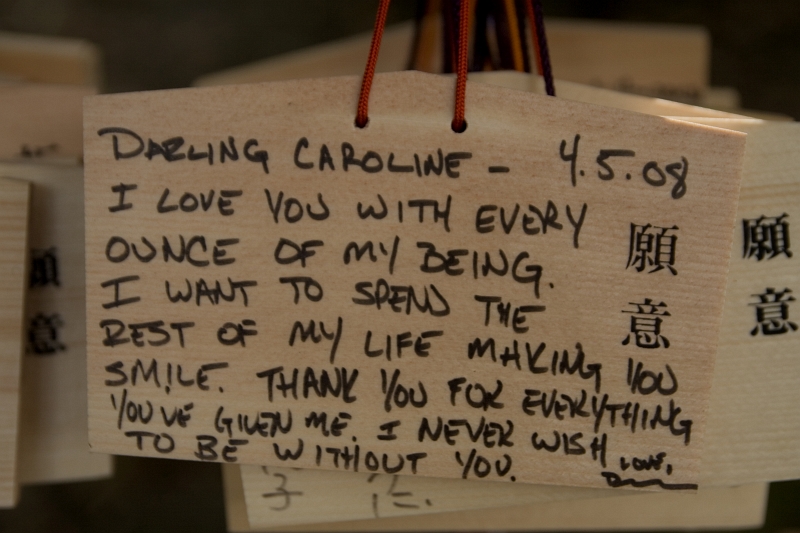 DARLING CAROLINE - 4.5.08
I LOVE YOU WITH EVERY
OUNCE OF MY BEING.
I WANT TO SPEND THE
REST OF MY LIFE MAKING YOU
SMILE. THANK YOU FOR EVERYTHING
YOU'VE GIVEN ME. I NEVER WISH
TO BE WITHOUT YOU. LOVE,
願意
願意
願意